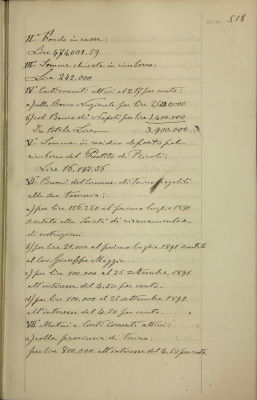 518
II° Fondo in cassa:
Lire 474,001.59
III° Somme chieste in rimborso:
Lire 242.000
IV° Conti correnti attivi al 2.17 per cento:
a) alla Banca Nazionale per lire 2500000
b) col Banco di Napoli per lire 1.400.000
In totale Lire 3.900.000
V° Somme in residuo deposito pel
rimborso del Prestito di Rivoli:
Lire 16,192.56
VI° Buoni del Comune di Torino pagabili
alla sua Tesoreria:
a) per lire 156.250 al primo luglio 1891
alla Società di risanamento e
di costruzioni
b) per lire 21.000 al primo luglio 1891
al Cav. Giuseppe Maggia
c) per lire 100.000 al 25 settembre 1891
all'interesse del 4.50 per cento
d) per lire 100.000 al 25 settembre 1891
all'interesse del 4.50 per cento
VII° Mutui a Conti Correnti attivi:
a) colla provincia di Torino
per lire 800,000 all'interesse del 4.50 per cento,